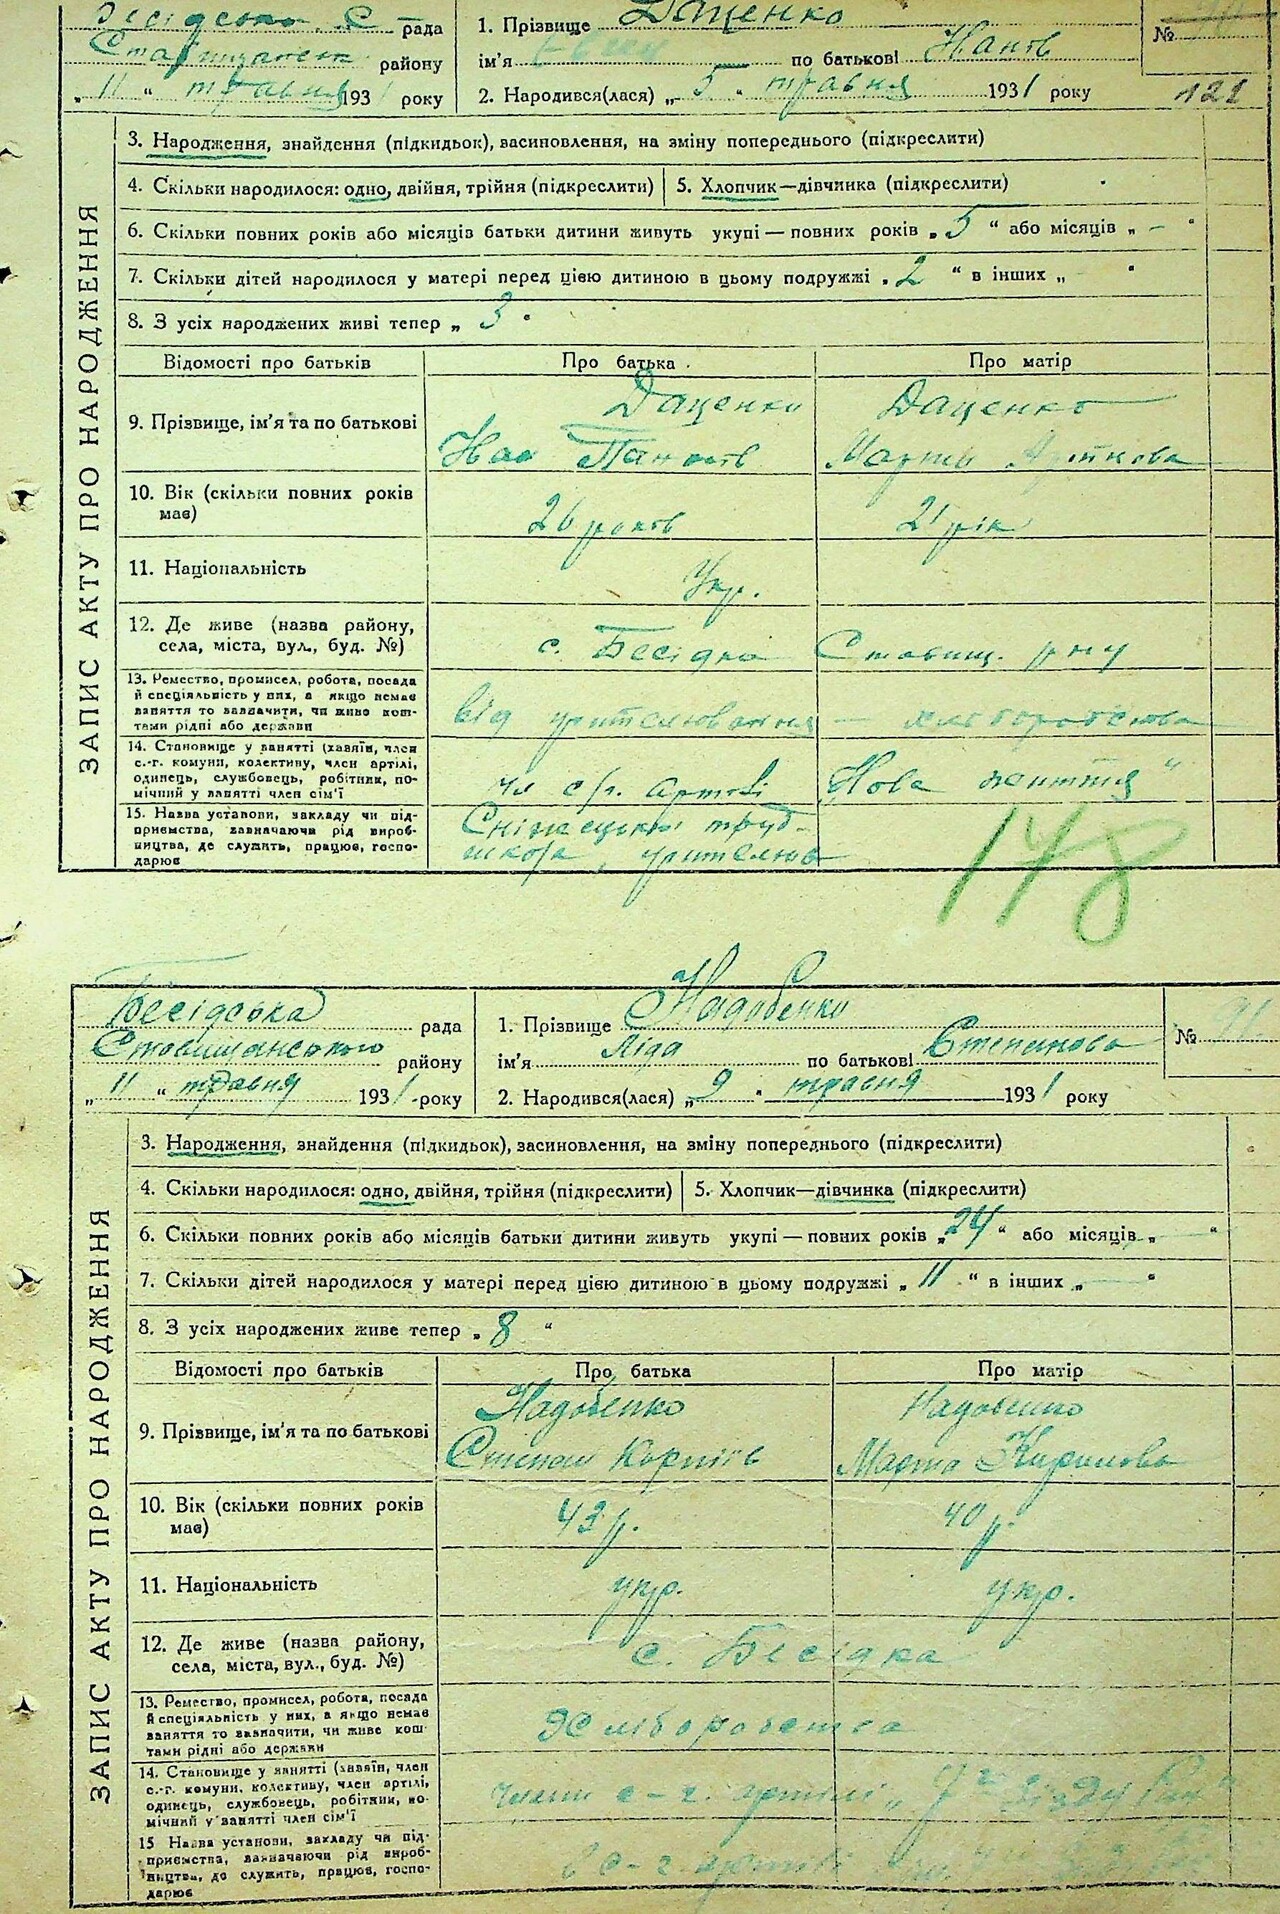 Бесідська С рада
району
„ 11 “ травня 1931 року
1. Прізвище Даценко
ім'я по батькові
2. Народився(лася) „ 5 “ травня 1931 року
№
121
ЗАПИС АКТУ ПРО НАРОДЖЕННЯ
3. Народження, знайдення (підкидьок), засиновлення, на зміну попереднього (підкреслити)
4. Скільки народилося: одно, двійня, трійня (підкреслити) 5. Хлопчик—дівчинка (підкреслити)
6. Скільки повних років або місяців батьки дитини живуть укупі — повних років „ 5 “ або місяців „ - “
7. Скільки дітей народилося у матері перед цією дитиною в цьому подружжі „ 2 “ в інших „ “
8. З усіх народжених живі тепер „ 3 “
Відомості про батьків Про батька Про матір
9. Прізвище, ім'я та по батькові
Даценко Даценко
10. Вік (скільки повних років має)
26 років 21 рік
11. Національність
Укр.
12. Де живе (назва району, села, міста, вул., буд. №)
с. Бесідка Ставищ. р-ну
13. Ремество, промисел, робота, посада
й спеціяльність у них, а якщо немає
заняття то зазначити, чи живе кош-
тами рідні або держави
від учителювання — хліборобства
14. Становище у занятті (хазяїн, член
с.-г. комуни, колективу, член артілі,
одинець, службовець, робітник, по-
мічний у занятті член сім'ї
чл с/г. артілі „Нова життя“
15. Назва установи, закладу чи під-
приємства, зазначаючи рід вироб-
ництва, де служить, працює, госпо-
дарює
труд-
школа,
148
Бесідська рада
Ставищанського району
„ 11 “ травня 1931 року
1. Прізвище Надобенко
ім'я Ліда по батькові Степанова
2. Народився(лася) „ 9 “ травня 1931 року
№ 91
ЗАПИС АКТУ ПРО НАРОДЖЕННЯ
3. Народження, знайдення (підкидьок), засиновлення, на зміну попереднього (підкреслити)
4. Скільки народилося: одно, двійня, трійня (підкреслити) 5. Хлопчик—дівчинка (підкреслити)
6. Скільки повних років або місяців батьки дитини живуть укупі — повних років „ 24 “ або місяців „ — “
7. Скільки дітей народилося у матері перед цією дитиною в цьому подружжі „ 11 “ в інших „ — “
8. З усіх народжених живе тепер „ 8 “
Відомості про батьків Про батька Про матір
9. Прізвище, ім'я та по батькові
Надобенко Надобенко
Степан Корніїв Марта Кирилова
10. Вік (скільки повних років має)
43 р. 40 р.
11. Національність
укр. укр.
12. Де живе (назва району, села, міста, вул., буд. №)
с. Бесідка
13. Ремество, промисел, робота, посада
й спеціяльність у них, а якщо немає
заняття то зазначити, чи живе кош-
тами рідні або держави
Хліборобства
14. Становище у занятті (хазяїн, член
с.-г. комуни, колективу, член артілі,
одинець, службовець, робітник, по-
мічний у занятті член сім'ї
члени с-г. артілі
15 Назва установи, закладу чи під-
приємства, зазначаючи рід вироб-
ництва, де служить, працює, госпо-
дарює
в с-г. артілі